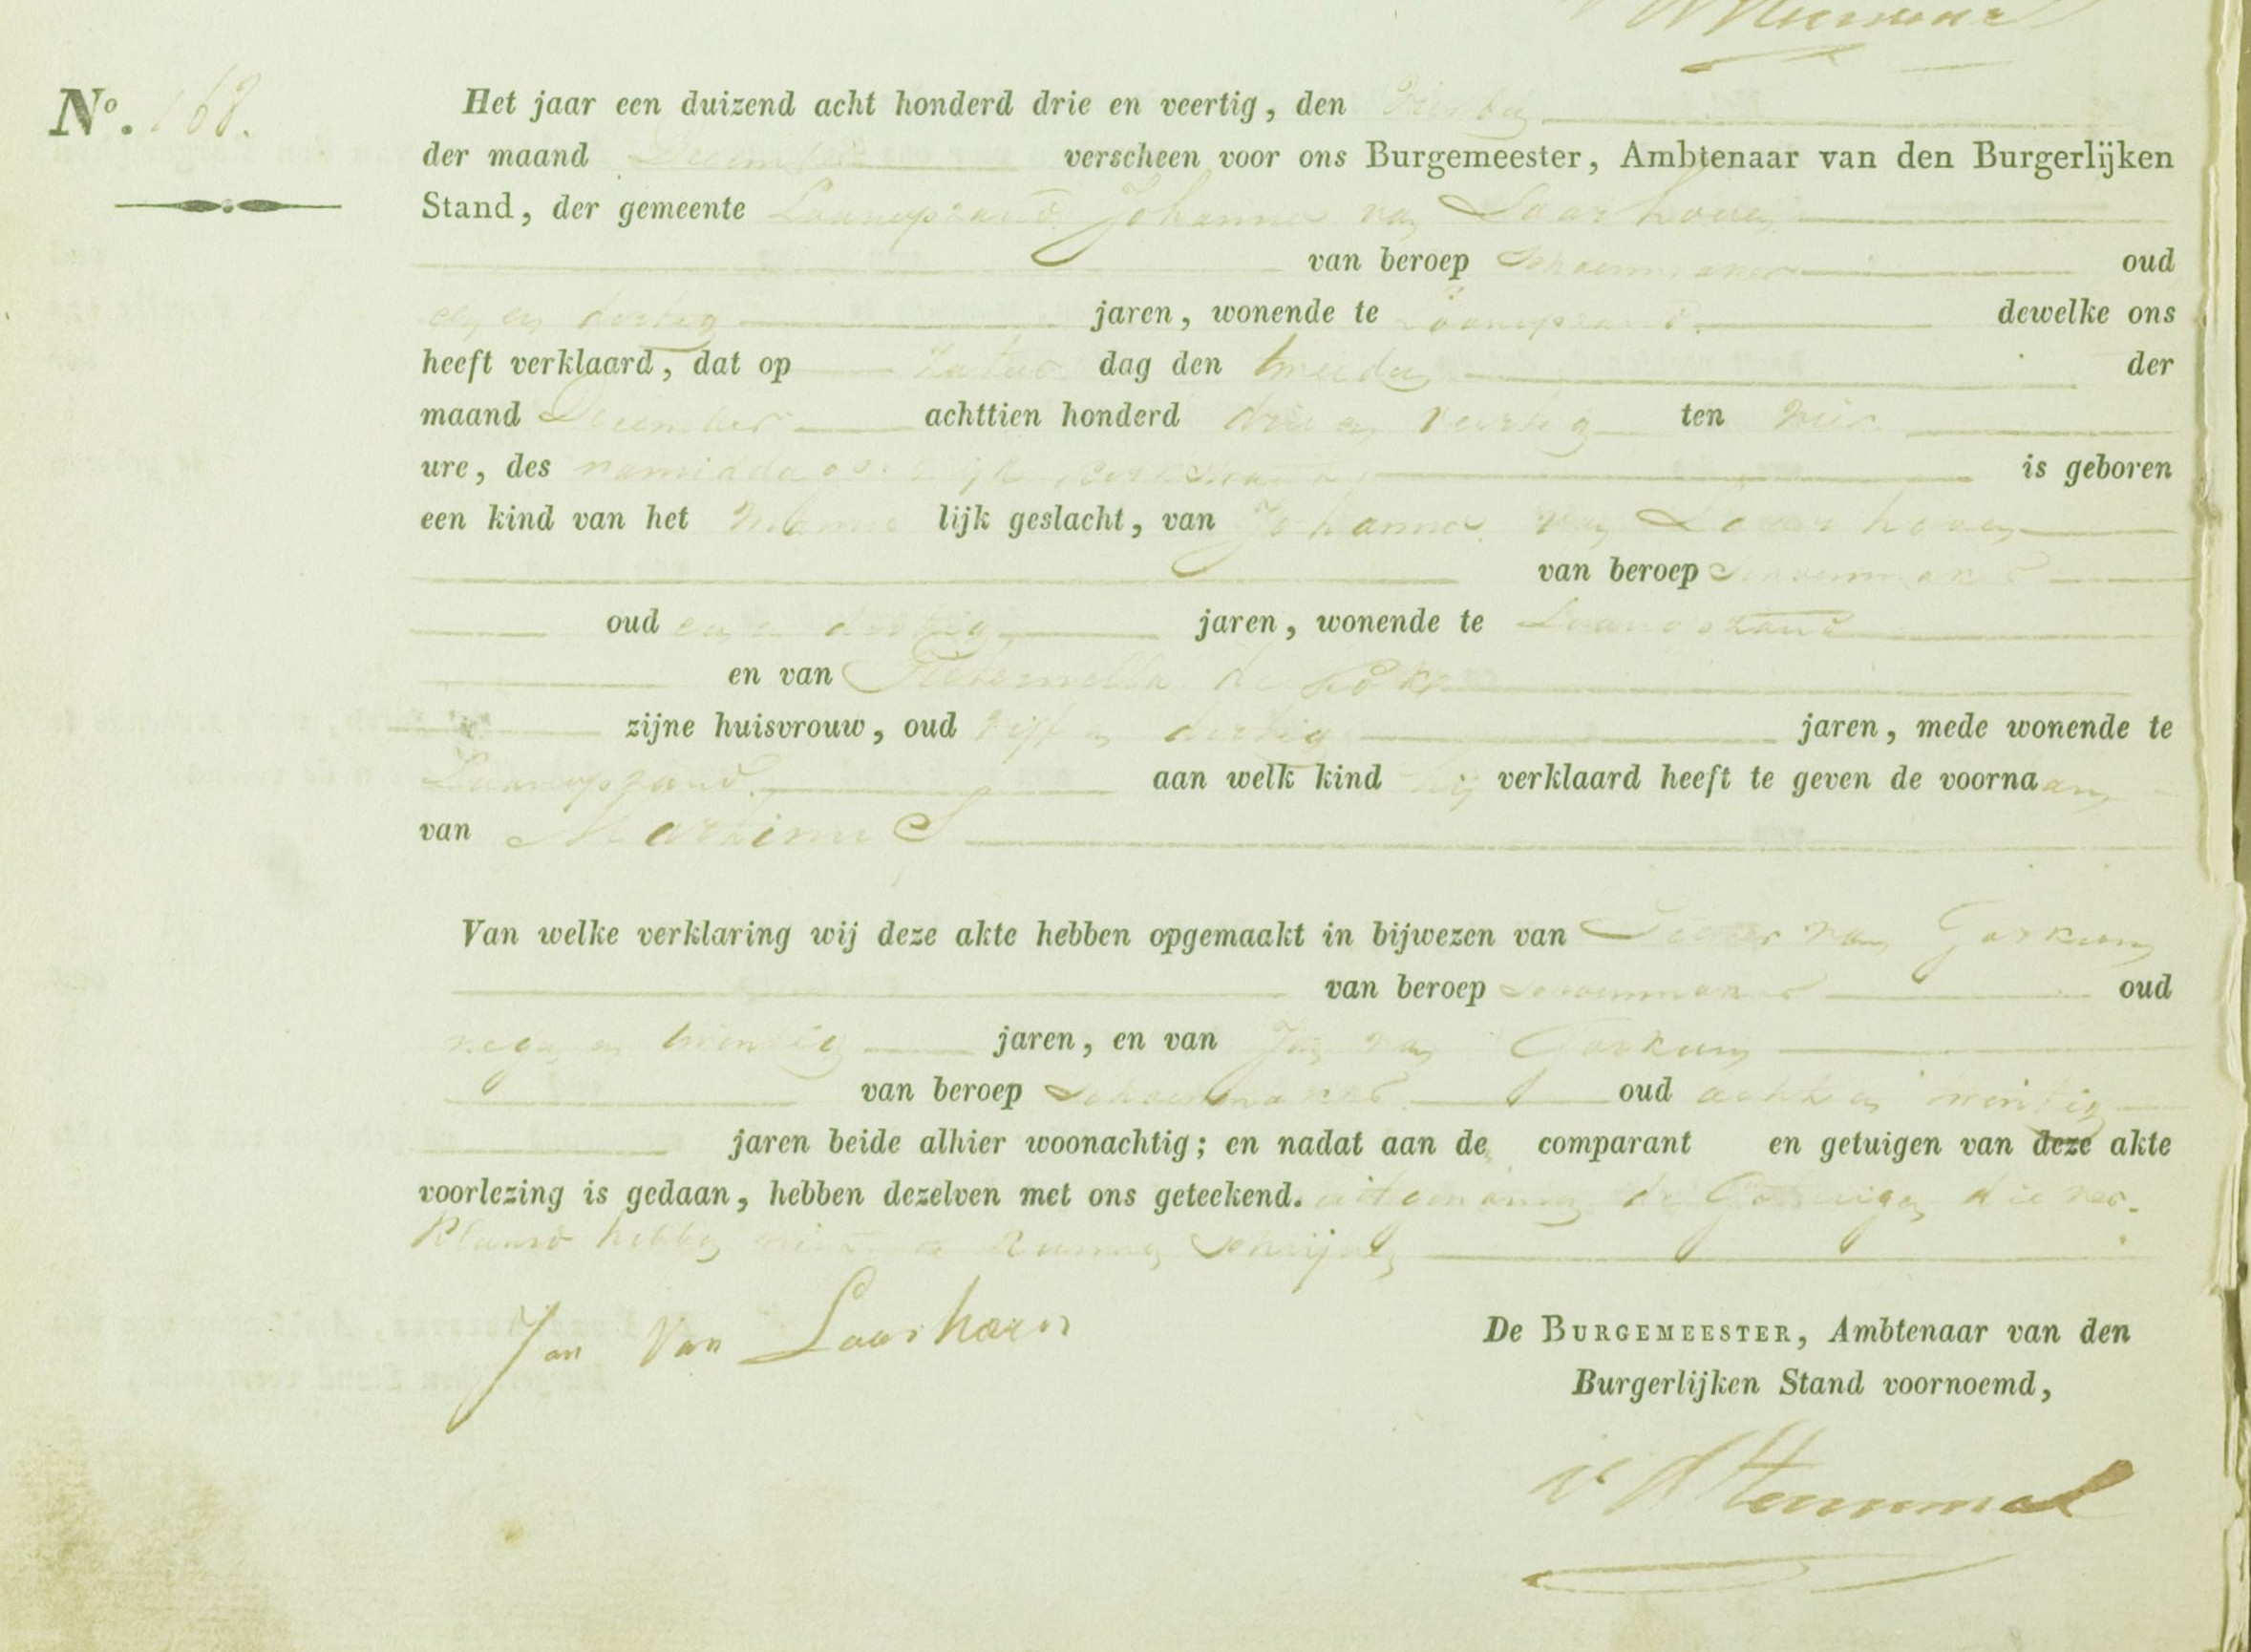 No. 168.
Het jaar een duizend acht honderd drie en veertig, den
der maand December verscheen voor ons Burgemeester, Ambtenaar van den Burgerlijken
Stand, der gemeente Loonopzand Johannes van Laarhoven
van beroep Schoenmaker oud
een en dertig jaren, wonende te Loonopzand dewelke ons
heeft verklaard, dat op Zatur dag den tweeden der
maand December achttien honderd drie en veertig ten vier
ure, des namiddags is geboren
een kind van het manne lijk geslacht, van Johannes van Laarhoven
van beroep Schoenmaker
oud een en dertig jaren, wonende te Loonopzand
en van Pieternella de
zijne huisvrouw, oud vijf en dertig jaren, mede wonende te
Loonopzand. aan welk kind hij verklaard heeft te geven de voornaam
van Martinus
Van welke verklaring wij deze akte hebben opgemaakt in bijwezen van Peeter van Gorkum
van beroep Schoenmaker oud
negen en twintig jaren, en van Jan van Gorkum
van beroep Schoenmaker oud acht en twintig
jaren beide alhier woonachtig; en nadat aan de comparant en getuigen van deze akte
voorlezing is gedaan, hebben dezelven met ons geteekend. uitgenomen de Getuigen die ver-
klaard hebben niet te kunnen Schrijven
Jan Van Laarhoven
De Burgemeester, Ambtenaar van den
Burgerlijken Stand voornoemd,